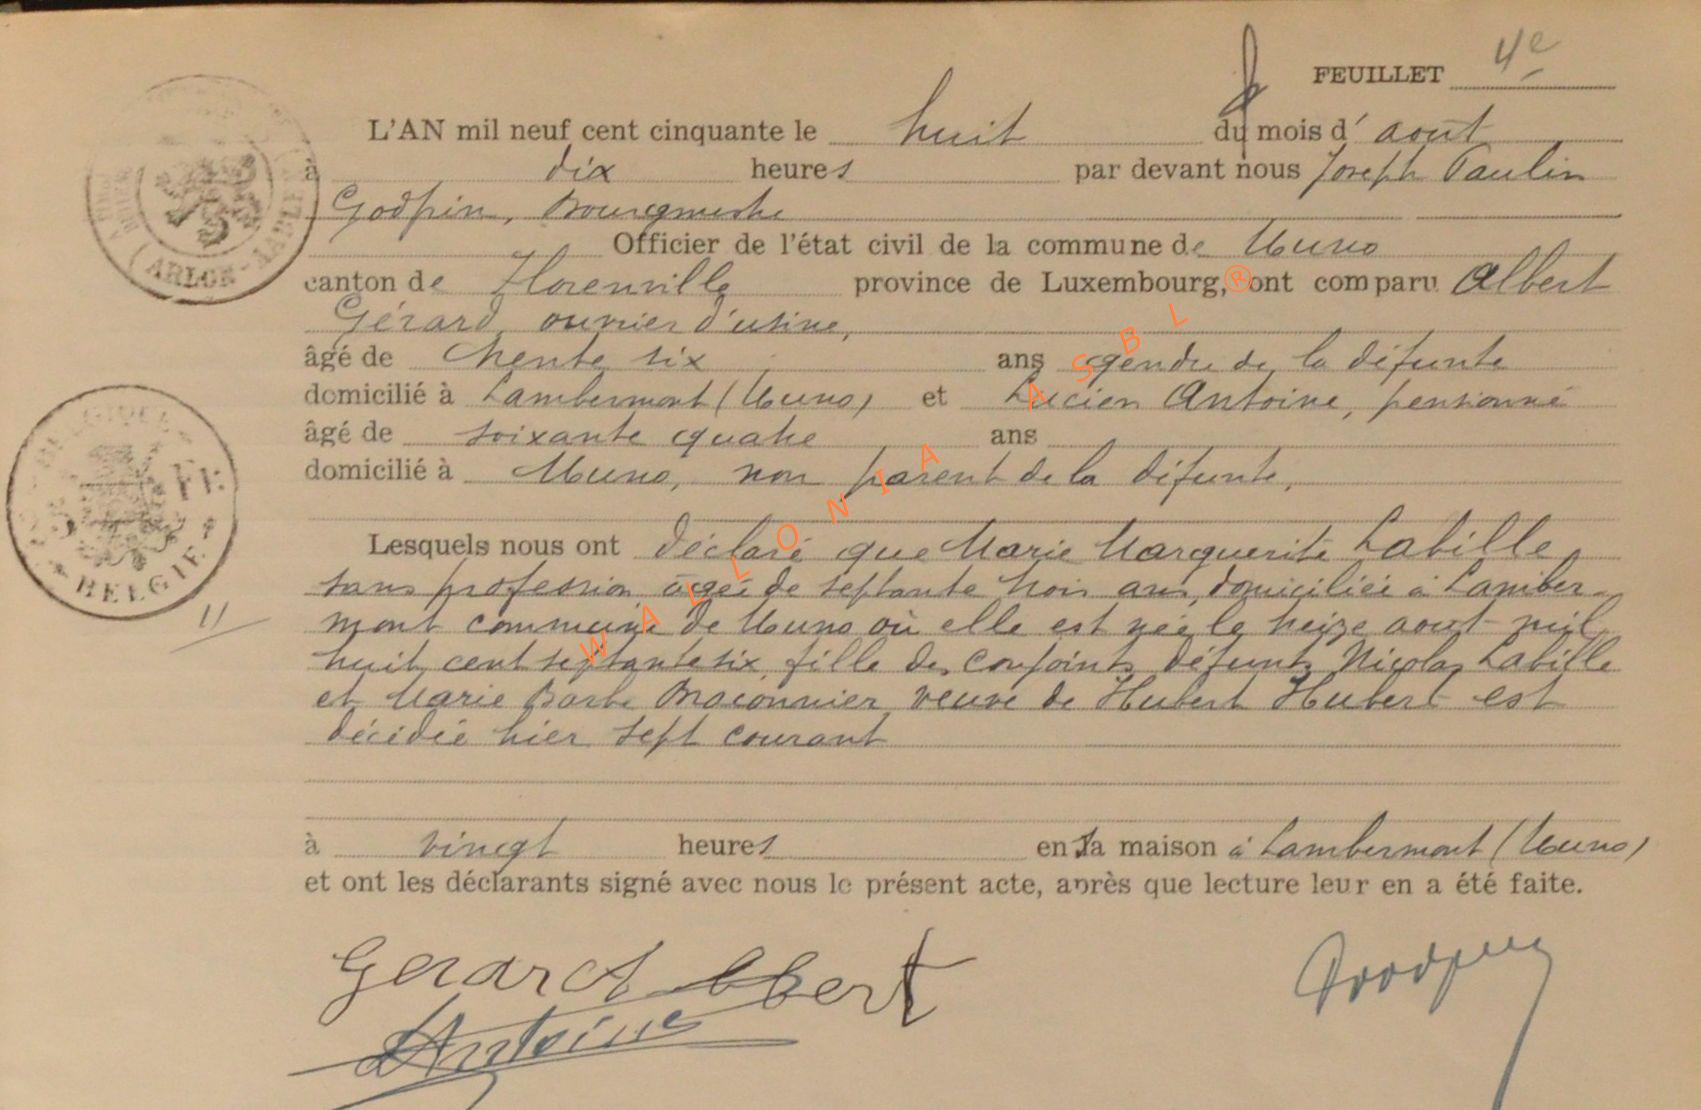 FEUILLET 4e
L'AN mil neuf cent cinquante le huit du mois d'août
à dix heures par devant nous Joseph Paulin
Godfrin, Bourgmestre
Officier de l'état civil de la commune de Muno
canton de Florenville province de Luxembourg, ont comparu Albert
Gérard, ouvrier d'usine,
âgé de trente six ans gendre de la défunte
domicilié à Lambermont (Muno) et Lucien Antoine, pensionné
âgé de soixante quatre ans
domicilié à Muno, non parent de la défunte,
Lesquels nous ont déclaré que Marie Marguerite Labille
sans profession, âgée de septante trois ans, domiciliée à Lamber-
mont commune de Muno où elle est née le treize août mil
huit cent septante six, fille des conjoints défunts Nicolas Labille
et Marie Barbe Braconnier veuve de Hubert Hubert est
décédée hier sept courant
à vingt heures en sa maison à Lambermont (Muno)
et ont les déclarants signé avec nous le présent acte, après que lecture leur en a été faite.
Gerard Albert
Antoine
ARLON
BELGIQUE
BELGIË
11
WALLONIA ASBL ®